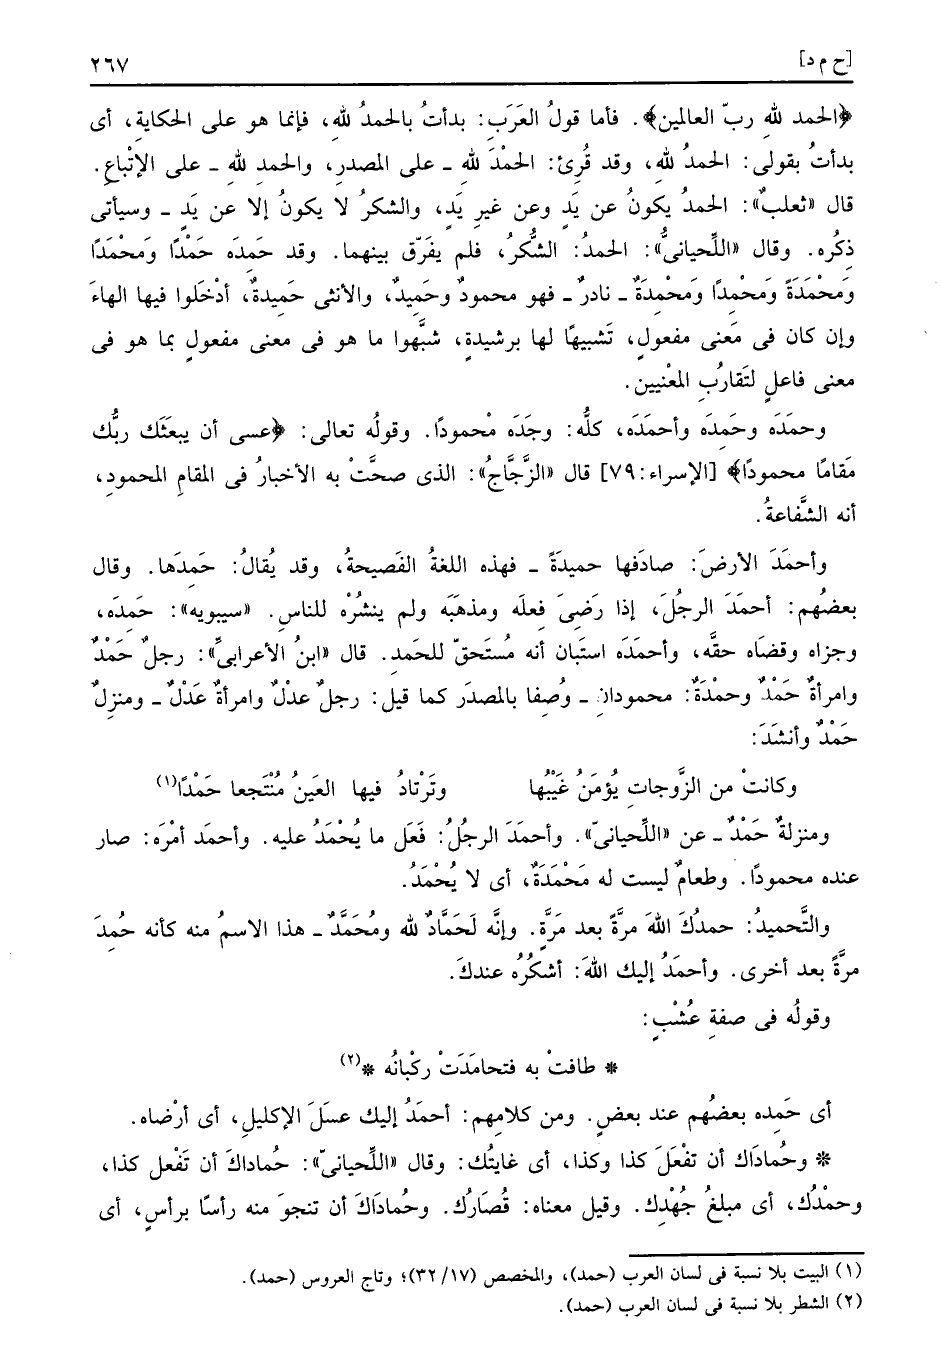 [ح م د] ٢٦٧
﴿الحمد لله ربّ العالمين﴾. فأما قولُ العَرَب: بدأتُ بالحمدُ للهِ، فإنما هو على الحكاية، أى
بدأتُ بقولى: الحمدُ للهِ، وقد قُرِئ: الحمْدَ للهِ ـ على المصدر، والحمدِ للهِ ـ على الإتْباعِ.
قال «ثعلبٌ»: الحمدُ يكونُ عن يَدٍ وعن غيرِ يَدٍ، والشكرُ لا يكونُ إلا عن يَدٍ ـ وسيأتى
ذكُره. وقال «اللِّحيانىُّ»: الحمدُ: الشُّكرُ، فلم يفَرّق بينهما. وقد حَمِدَه حَمْدًا ومَحْمَدًا
ومَحْمَدَةً ومَحْمِدًا ومَحْمِدَةً ـ نادرٌ ـ فهو محمودٌ وحَميدٌ، والأنثى حَميدةٌ، أدْخَلوا فيها الهاءَ
وإن كان فى مَعنى مفعولٍ، تَشبيهًا لها برشيدةٍ، شبَّهوا ما هو فى معنى مفعولٍ بما هو فى
معنى فاعلٍ لتَقارُبِ المعْنيين.
وحمَدَه وحَمِدَه وأحمَدَه، كلُّه: وجَدَه محْمودًا. وقولُه تعالى: ﴿عسى أن يبعثَك ربُّك
مَقامًا محمودًا﴾ [الإسراء:٧٩] قال «الزَّجَّاجُ»: الذى صحَّتْ به الأخبارُ فى المقامِ المحمودِ،
أنه الشَّفاعةُ.
وأحمَدَ الأرضَ: صادَفها حميدَةً ـ فهذه اللغةُ الفَصيحةُ، وقد يُقالُ: حَمِدَها. وقال
بعضُهم: أحمَدَ الرجُلَ، إذا رَضِىَ فعلَه ومذهَبَه ولم ينشُرْه للناسِ. «سيبويه»: حَمِدَه،
وجزاه وقضَاه حقَّه، وأحمَدَه استَبان أنه مُستَحقّ للحَمدِ. قال «ابنُ الأعرابىِّ»: رجلٌ حَمْدٌ
وامرأةٌ حَمْدٌ وحمْدَةٌ: محمودانِ ـ وُصِفا بالمصدَر كما قيل: رجلٌ عدْلٌ وامرأةٌ عَدْلٌ ـ ومنزِلٌ
حَمْدٌ وأنشَدَ:
وكانتْ من الزَّوجاتِ يُؤمَنُ غَيْبُها وتَرْتادُ فيها العَينُ مُنْتَجعا حَمْدًا(١)
ومنزلةٌ حَمْدٌ ـ عن «اللِّحيانىّ». وأحمَدَ الرجُلُ: فَعَل ما يُحْمَدُ عليه. وأحمَد أمْرَه: صار
عنده محمودًا. وطعامٌ ليست له مَحْمَدَةٌ، أى لا يُحْمَدُ.
والتَّحميدُ: حمدُكَ اللهَ مرَّةً بعد مَرَّةٍ. وإنَّه لَحَمَّادٌ للهِ ومُحَمَّدٌ ـ هذا الاسمُ منه كأنه حُمِدَ
مرَّةً بعد أخرى. وأحمَدُ إليك اللهَ: أشكُرُه عندكَ.
وقولُه فى صفةِ عُشْبٍ:
* طافتْ به فتحامَدَتْ ركْبانُه *(٢)
أى حَمِده بعضُهم عند بعضٍ. ومن كلامِهم: أحمَدُ إليك عسَلَ الإكليلِ، أى أرْضاه.
* وحُمادَاك أن تفْعَلَ كذا وكذا، أى غايتُك: وقال «اللِّحيانىّ»: حُماداكَ أن تَفْعل كذا،
وحمْدُك، أى مبلغُ جُهْدِك. وقيل معناه: قُصَارُك. وحُمادَاكَ أن تنجوَ منه رأسًا برأسٍ، أى
(١) البيت بلا نسبة فى لسان العرب (حمد)، والمخصص (١٧/ ٣٢)؛ وتاج العروس (حمد).
(٢) الشطر بلا نسبة فى لسان العرب (حمد).